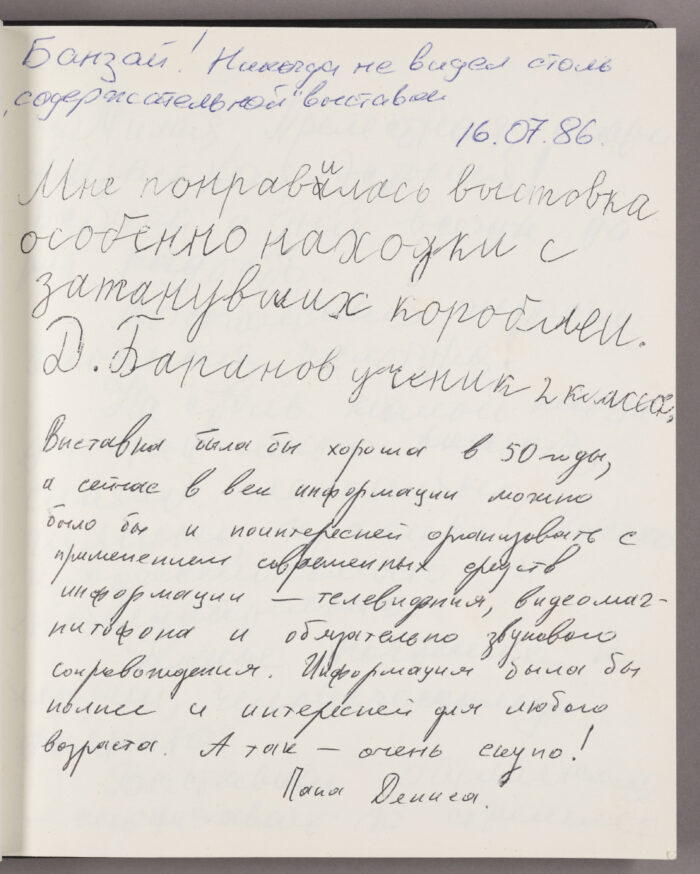 Банзай! Никогда не видел столь
„содержательной" выставки
16.07.86.
Мне понравилась выстовка
особенно находки с
затанувших кораблей.
Д. Баранов ученик 2 класса,
Выставка была бы хороша в 50-годы,
а сейчас в век информации можно
было бы и поинтересней организовать с
применением современных средств
информации — телевидения, видеомаг-
нитофона и обязательно звукового
сопровождения. Информация была бы
полнее и интересней для любого
возраста. А так — очень скупо!
Папа Дениса.